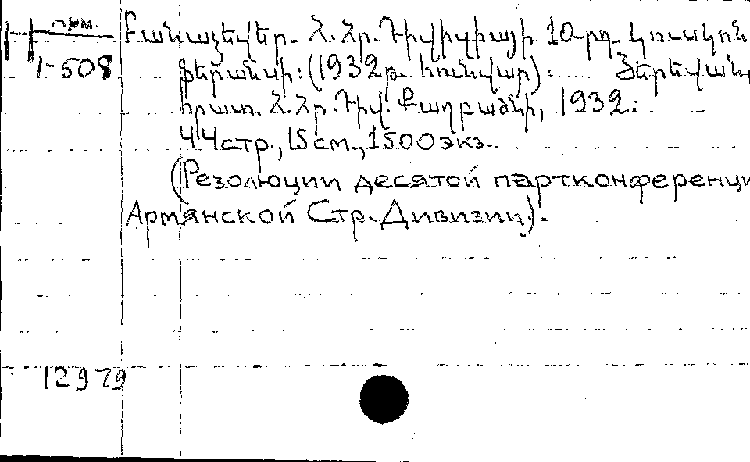 арм. Բանաձեվեր. Հ. Հր. Դիվիզիայի 10-րդ. կուսկոն
1-508 ֆերանսի: (1932թ. հունվար): Յերեվան,
հրատ. Հ. Հր. Դիվ. Քաղբաժնի, 1932.
44стр., 15см., 1500экз.
(Резолюции десятой партконференци
Армянской Стр. Дивизии).
12979